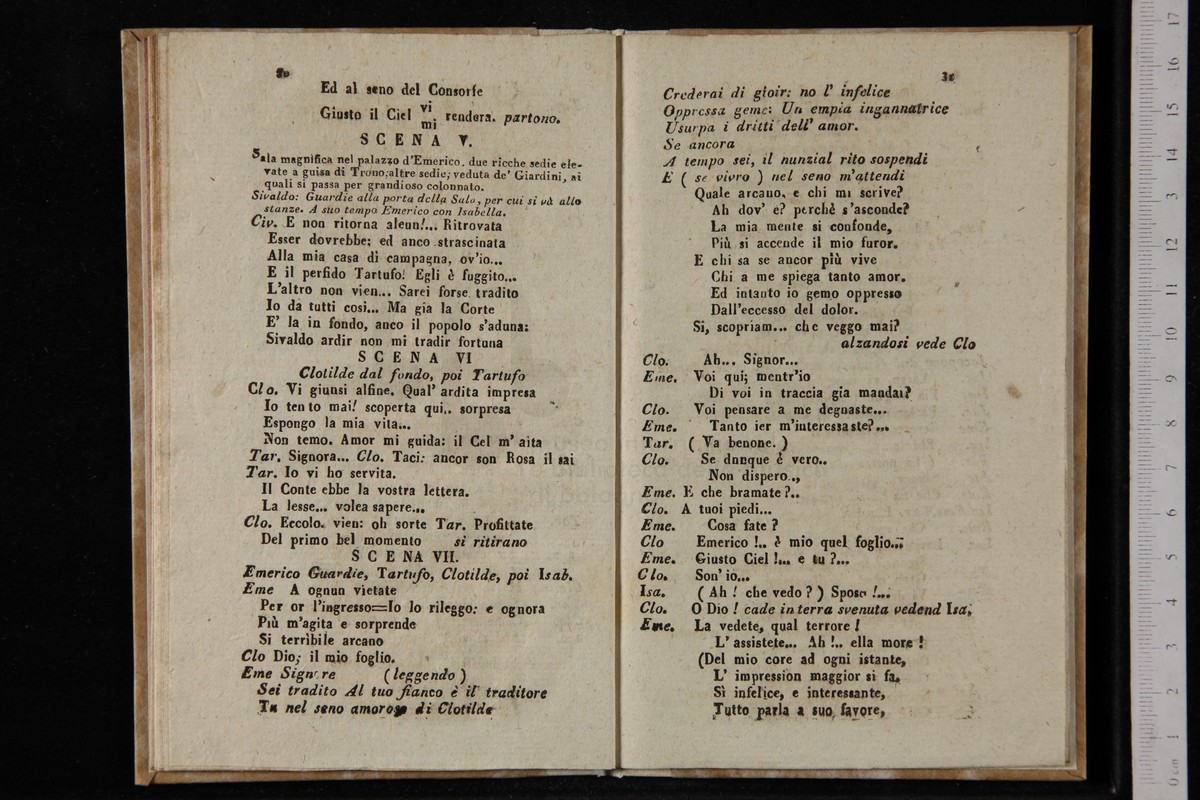 30
Ed al seno del Consorte
Giusto il Ciel vi/mi. rendera. partono.
SCENA V.
Sala magnifica nel palazzo d'Emerico. due ricche sedie ele-
vate a guisa di Trono; altre sedie; veduta de' Giardini, ai
quali si passa per grandioso colonnato.
Sivaldo: Guardie alla porta della Sala, per cui si và allo
stanze. A suo tempo Emerico con Isabella.
Civ. E non ritorna aleun!... Ritrovata
Esser dovrebbe; ed anco strascinata
Alla mia casa di campagna, ov'io...
E il perfido Tartufo! Egli è fuggito...
L'altro non vien... Sarei forse tradito
Io da tutti così... Ma gia la Corte
E' la in fondo, anco il popolo s'aduna:
Sivaldo ardir non mi tradir fortuna
SCENA VI
Clotilde dal fondo, poi Tartufo
Clo. Vi giunsi alfine. Qual' ardita impresa
Io tento mai! scoperta qui.. sorpresa
Espongo la mia vita...
Non temo. Amor mi guida: il Cel m' aita
Tar. Signora... Clo. Taci: ancor son Rosa il sai
Tar. Io vi ho servita.
Il Conte ebbe la vostra lettera.
La lesse... volea sapere...
Clo. Eccolo. vien: oh sorte Tar. Profittate
Del primo bel momento si ritirano
SCENA VII.
Emerico Guardie, Tartufo, Clotilde, poi Isab.
Eme A ognun vietate
Per or l'ingresso=Io lo rileggo: e ognora
Più m'agita e sorprende
Si terribile arcano
Clo Dio; il mio foglio.
Eme Signore (leggendo)
Sei tradito Al tuo fianco è il traditore
Tu nel seno amoroso di Clotilde
31
Crederai di gioir: no l' infelice
Oppressa geme: Un empia ingannatrice
Usurpa i dritti dell' amor.
Se ancora
A tempo sei, il nunzial rito sospendi
E ( se vivro ) nel seno m'attendi
Quale arcano, e chi mi scrive?
Ah dov' e? perchè s'asconde?
La mia mente si confonde,
Più si accende il mio furor.
E chi sa se ancor più vive
Chi a me spiega tanto amor.
Ed intanto io gemo oppresso
Dall'eccesso del dolor.
Si, scopriam... che veggo mai?
alzandosi vede Clo
Clo. Ah... Signor...
Eme. Voi qui; mentr'io
Di voi in traccia gia mandai?
Clo. Voi pensare a me degnaste...
Eme. Tanto ier m'interessaste?...
Tar. ( Va benone. )
Clo. Se dnnque è vero..
Non dispero.,
Eme. E che bramate?..
Clo. A tuoi piedi...
Eme. Cosa fate ?
Clo Emerico !.. è mio quel foglio...
Eme. Giusto Ciel !... e tu ?...
Clo. Son' io...
Isa. ( Ah ! che vedo ? ) Sposo !...
Clo. O Dio ! cade in terra svenuta vedend Isa.
Eme. La vedete, qual terrore !
L' assistete... Ah !.. ella more !
(Del mio core ad ogni istante,
L' impression maggior si fa.
Sì infelice, e interessante,
Tutto parla a suo favore,